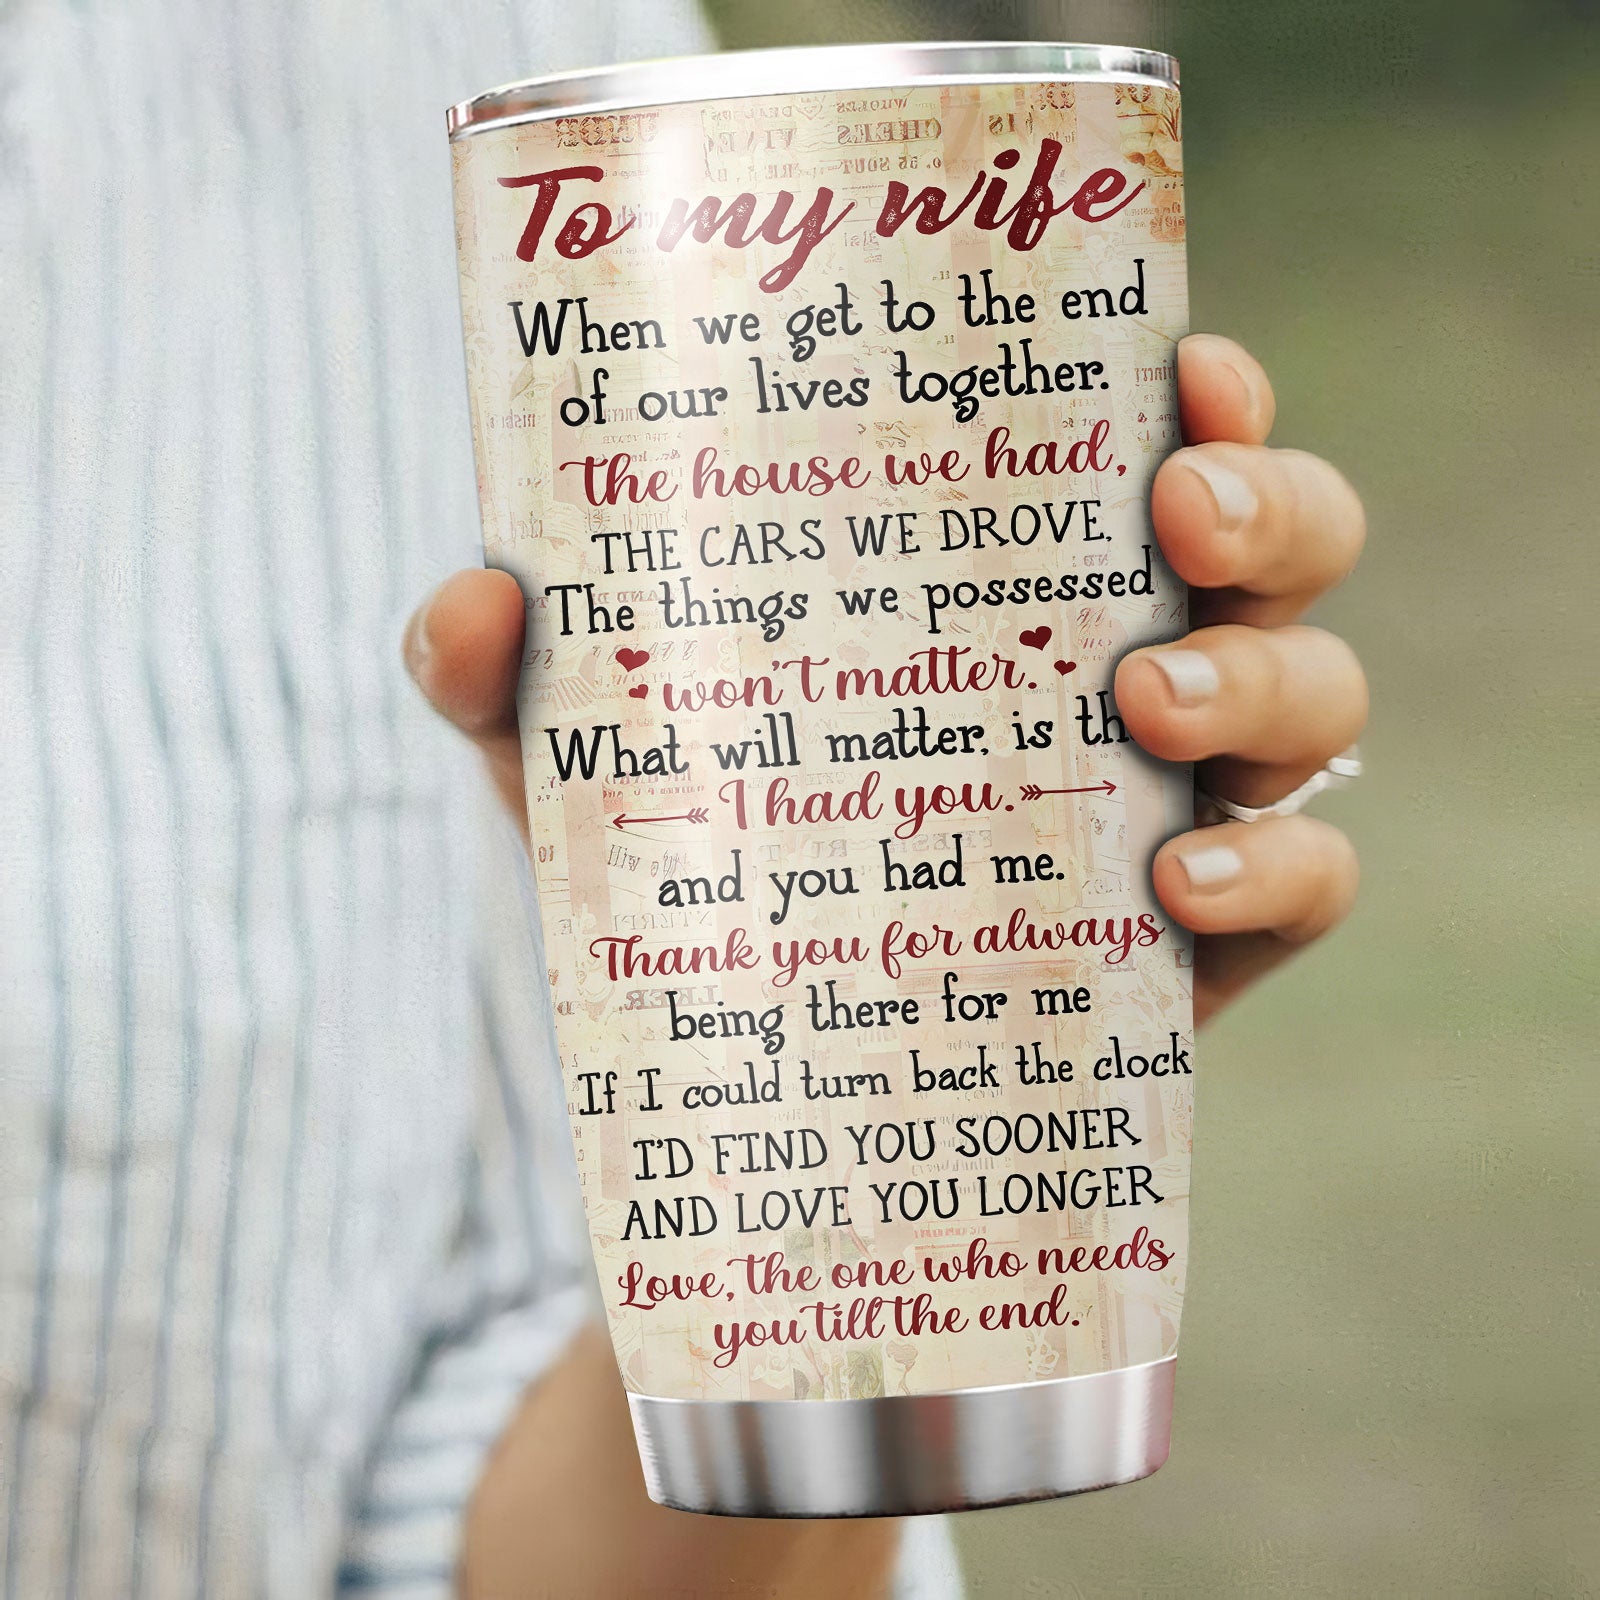 To my wife
When we get to the end
of our lives together.
the house we had,
THE CARS WE DROVE.
The things we possessed
won't matter.
What will matter. is th
I had you.
and you had me.
Thank you for always
being there for me
If I could turn back the clock
I'D FIND YOU SOONER
AND LOVE YOU LONGER
Love, the one who needs
you till the end.